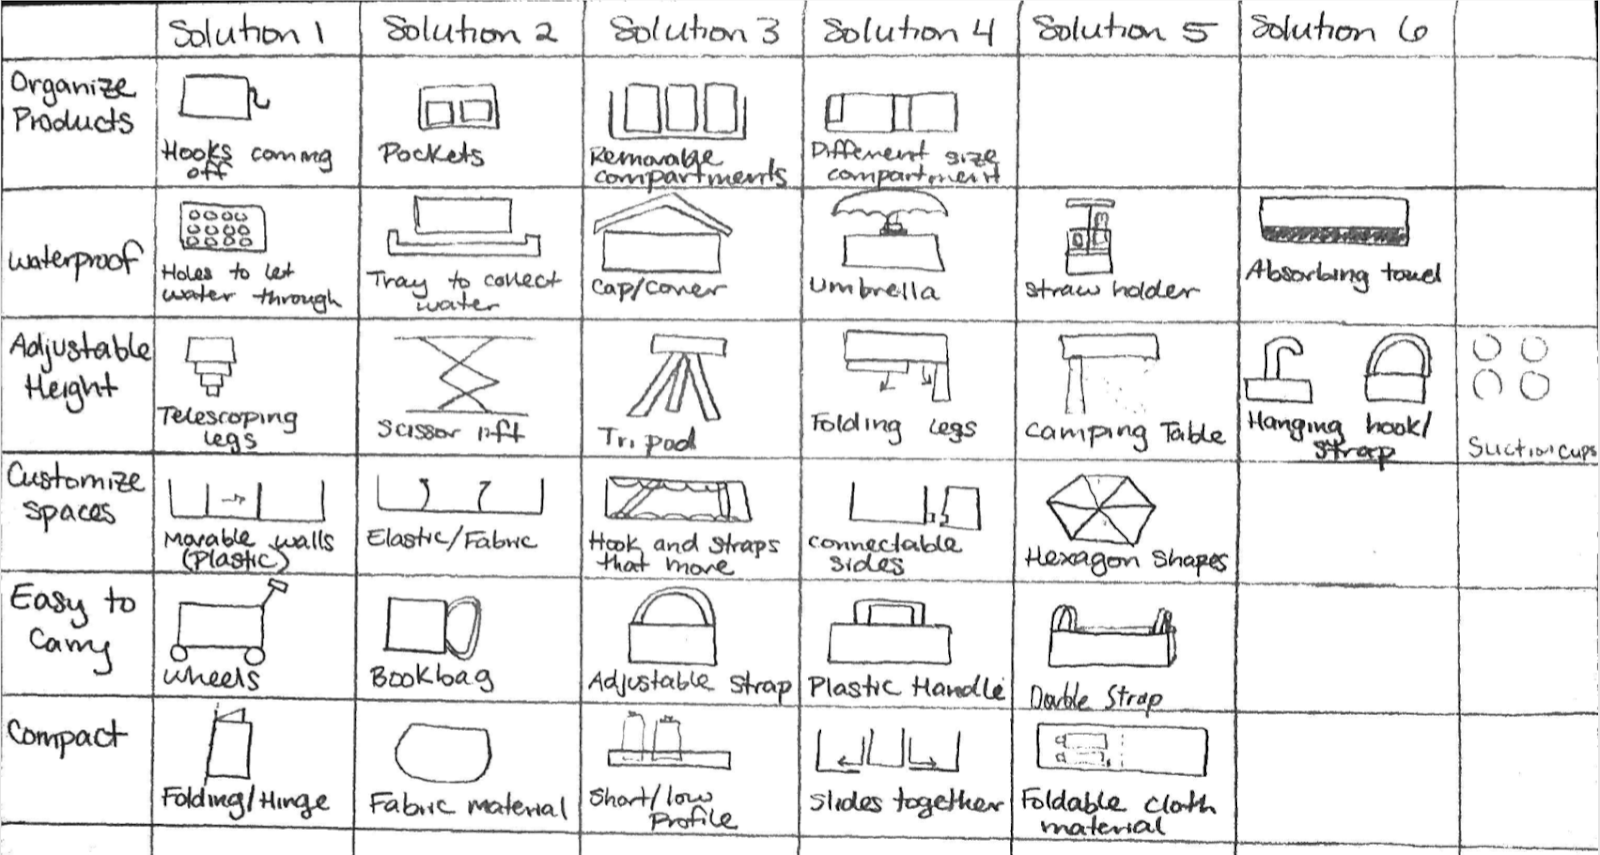 Solution 1
Solution 2
Solution 3
Solution 4
Solution 5
Solution 6
Organize
Products
Hooks coming
off
Pockets
Removable
compartments
Different size
compartment
waterproof
Holes to let
water through
Tray to collect
water
Cap/cover
Umbrella
Straw holder
Absorbing towel
Adjustable
Height
Telescoping
legs
Scissor lift
Tripod
Folding legs
Camping Table
Hanging hook/
Strap
Suction cups
Customize
Spaces
Movable walls
(Plastic)
Elastic/Fabric
Hook and straps
that move
connectable
sides
Hexagon Shapes
Easy to
Carry
Wheels
Bookbag
Adjustable Strap
Plastic Handle
Double Strap
Compact
Folding/Hinge
Fabric material
Short/low
Profile
Slides together
Foldable cloth
material